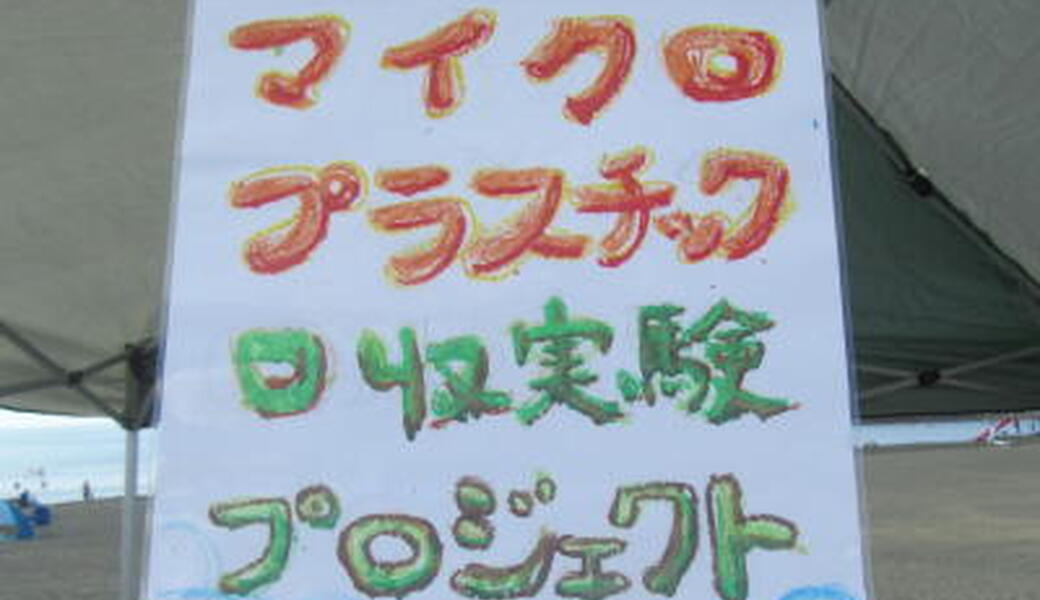 マイクロ
プラスチック
回収実験
プロジェクト